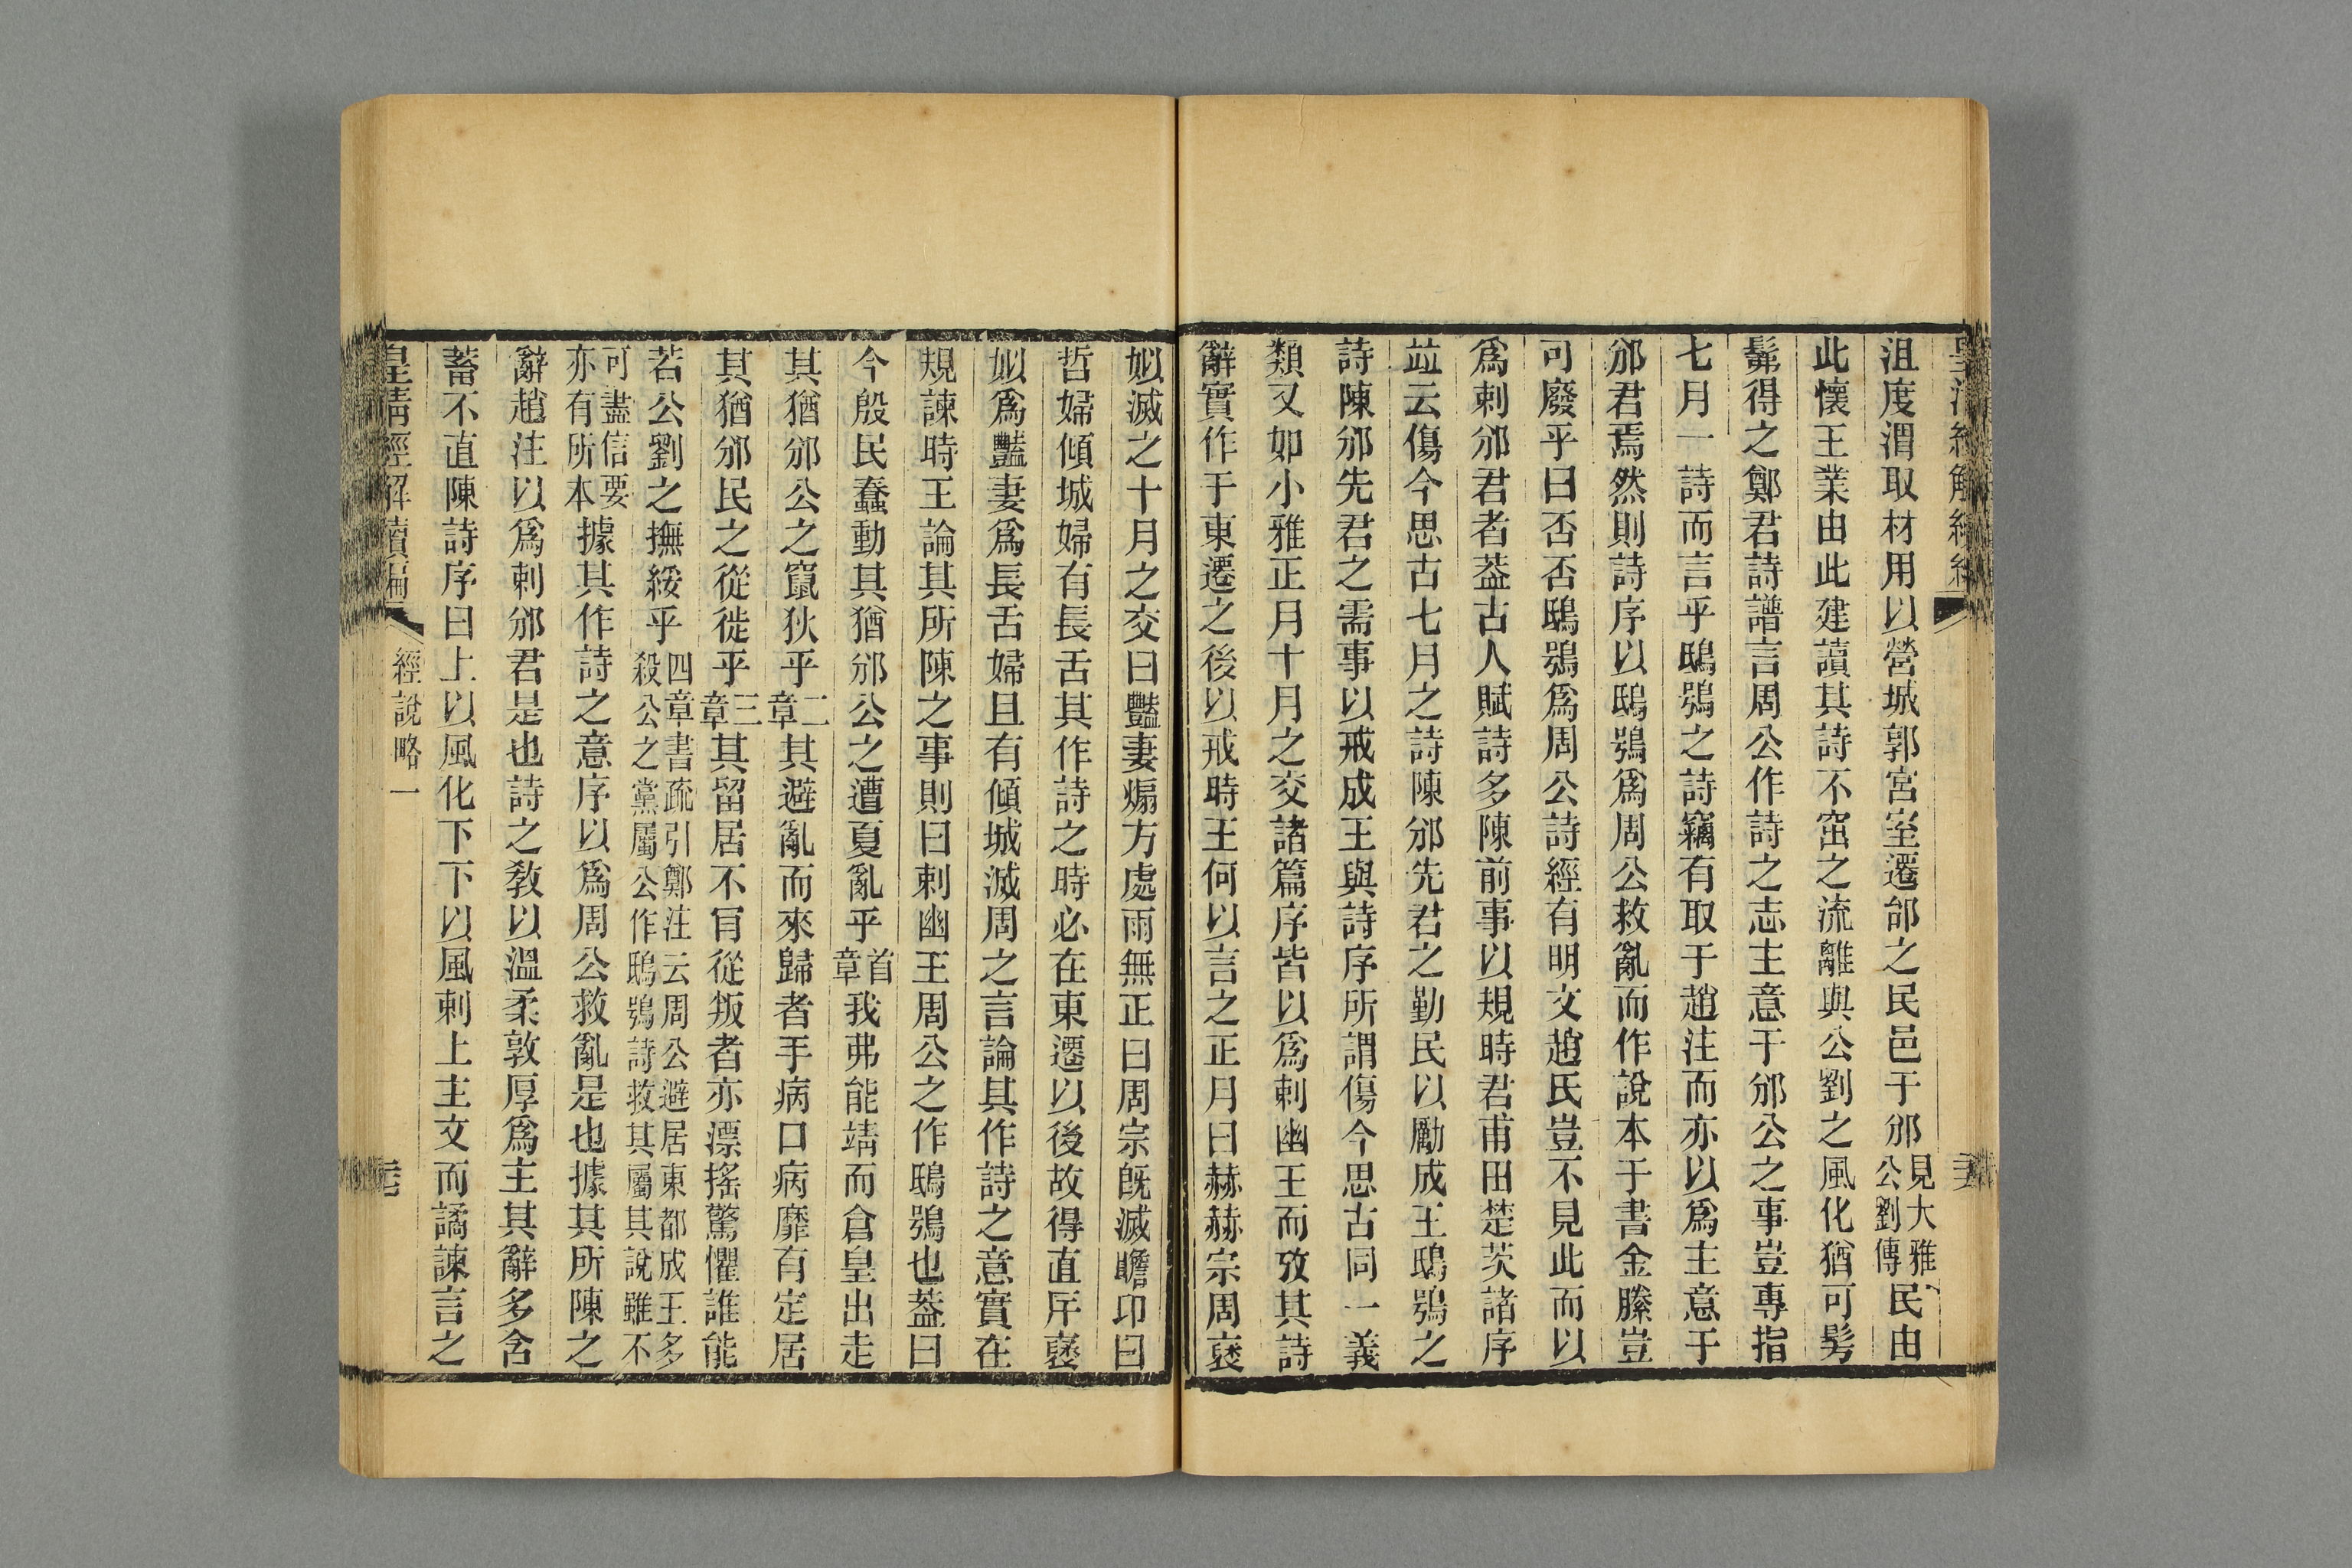 沮度渭取材用以營城郭宮室遷邰之民邑于邠見大雅公劉傳民由
此懷王業由此建讀其詩不窋之流離與公劉之風化猶可髣
髴得之鄭君詩譜言周公作詩之志主意于邠公之事豈專指
七月一詩而言乎鴟鴞之詩竊有取于趙注而亦以爲主意于
邠君焉然則詩序以鴟鴞爲周公救亂而作說本于書金縢豈
可廢乎曰否否鴟鴞爲周公詩經有明文趙氏豈不見此而以
爲刺邠君者葢古人賦詩多陳前事以規時君甫田楚茨諸序
竝云傷今思古七月之詩陳邠先君之勤民以勵成王鴟鴞之
詩陳邠先君之需事以戒成王與詩序所謂傷今思古同一義
類又如小雅正月十月之交諸篇序皆以爲刺幽王而攷其詩
辭實作于東遷之後以戒時王何以言之正月曰赫赫宗周襃
姒滅之十月之交曰豔妻煽方處雨無正曰周宗旣滅瞻卬曰
哲婦傾城婦有長舌其作詩之時必在東遷以後故得直斥襃
姒爲豔妻爲長舌婦且有傾城滅周之言論其作詩之意實在
規諫時王論其所陳之事則曰刺幽王周公之作鴟鴞也葢曰
今殷民蠢動其猶邠公之遭夏亂乎首章我弗能靖而倉皇出走
其猶邠公之竄狄乎二章其避亂而來歸者手病口病靡有定居
其猶邠民之從徙乎三章其留居不肎從叛者亦漂搖驚懼誰能
若公劉之撫綏乎四章書疏引鄭注云周公避居東都成王多殺公之黨屬公作鴟鴞詩救其屬其說雖不
可盡信要亦有所本據其作詩之意序以爲周公救亂是也據其所陳之
辭趙注以爲刺邠君是也詩之敎以溫柔敦厚爲主其辭多含
蓄不直陳詩序曰上以風化下下以風刺上主文而譎諫言之
皇淸經解續編
經說略一